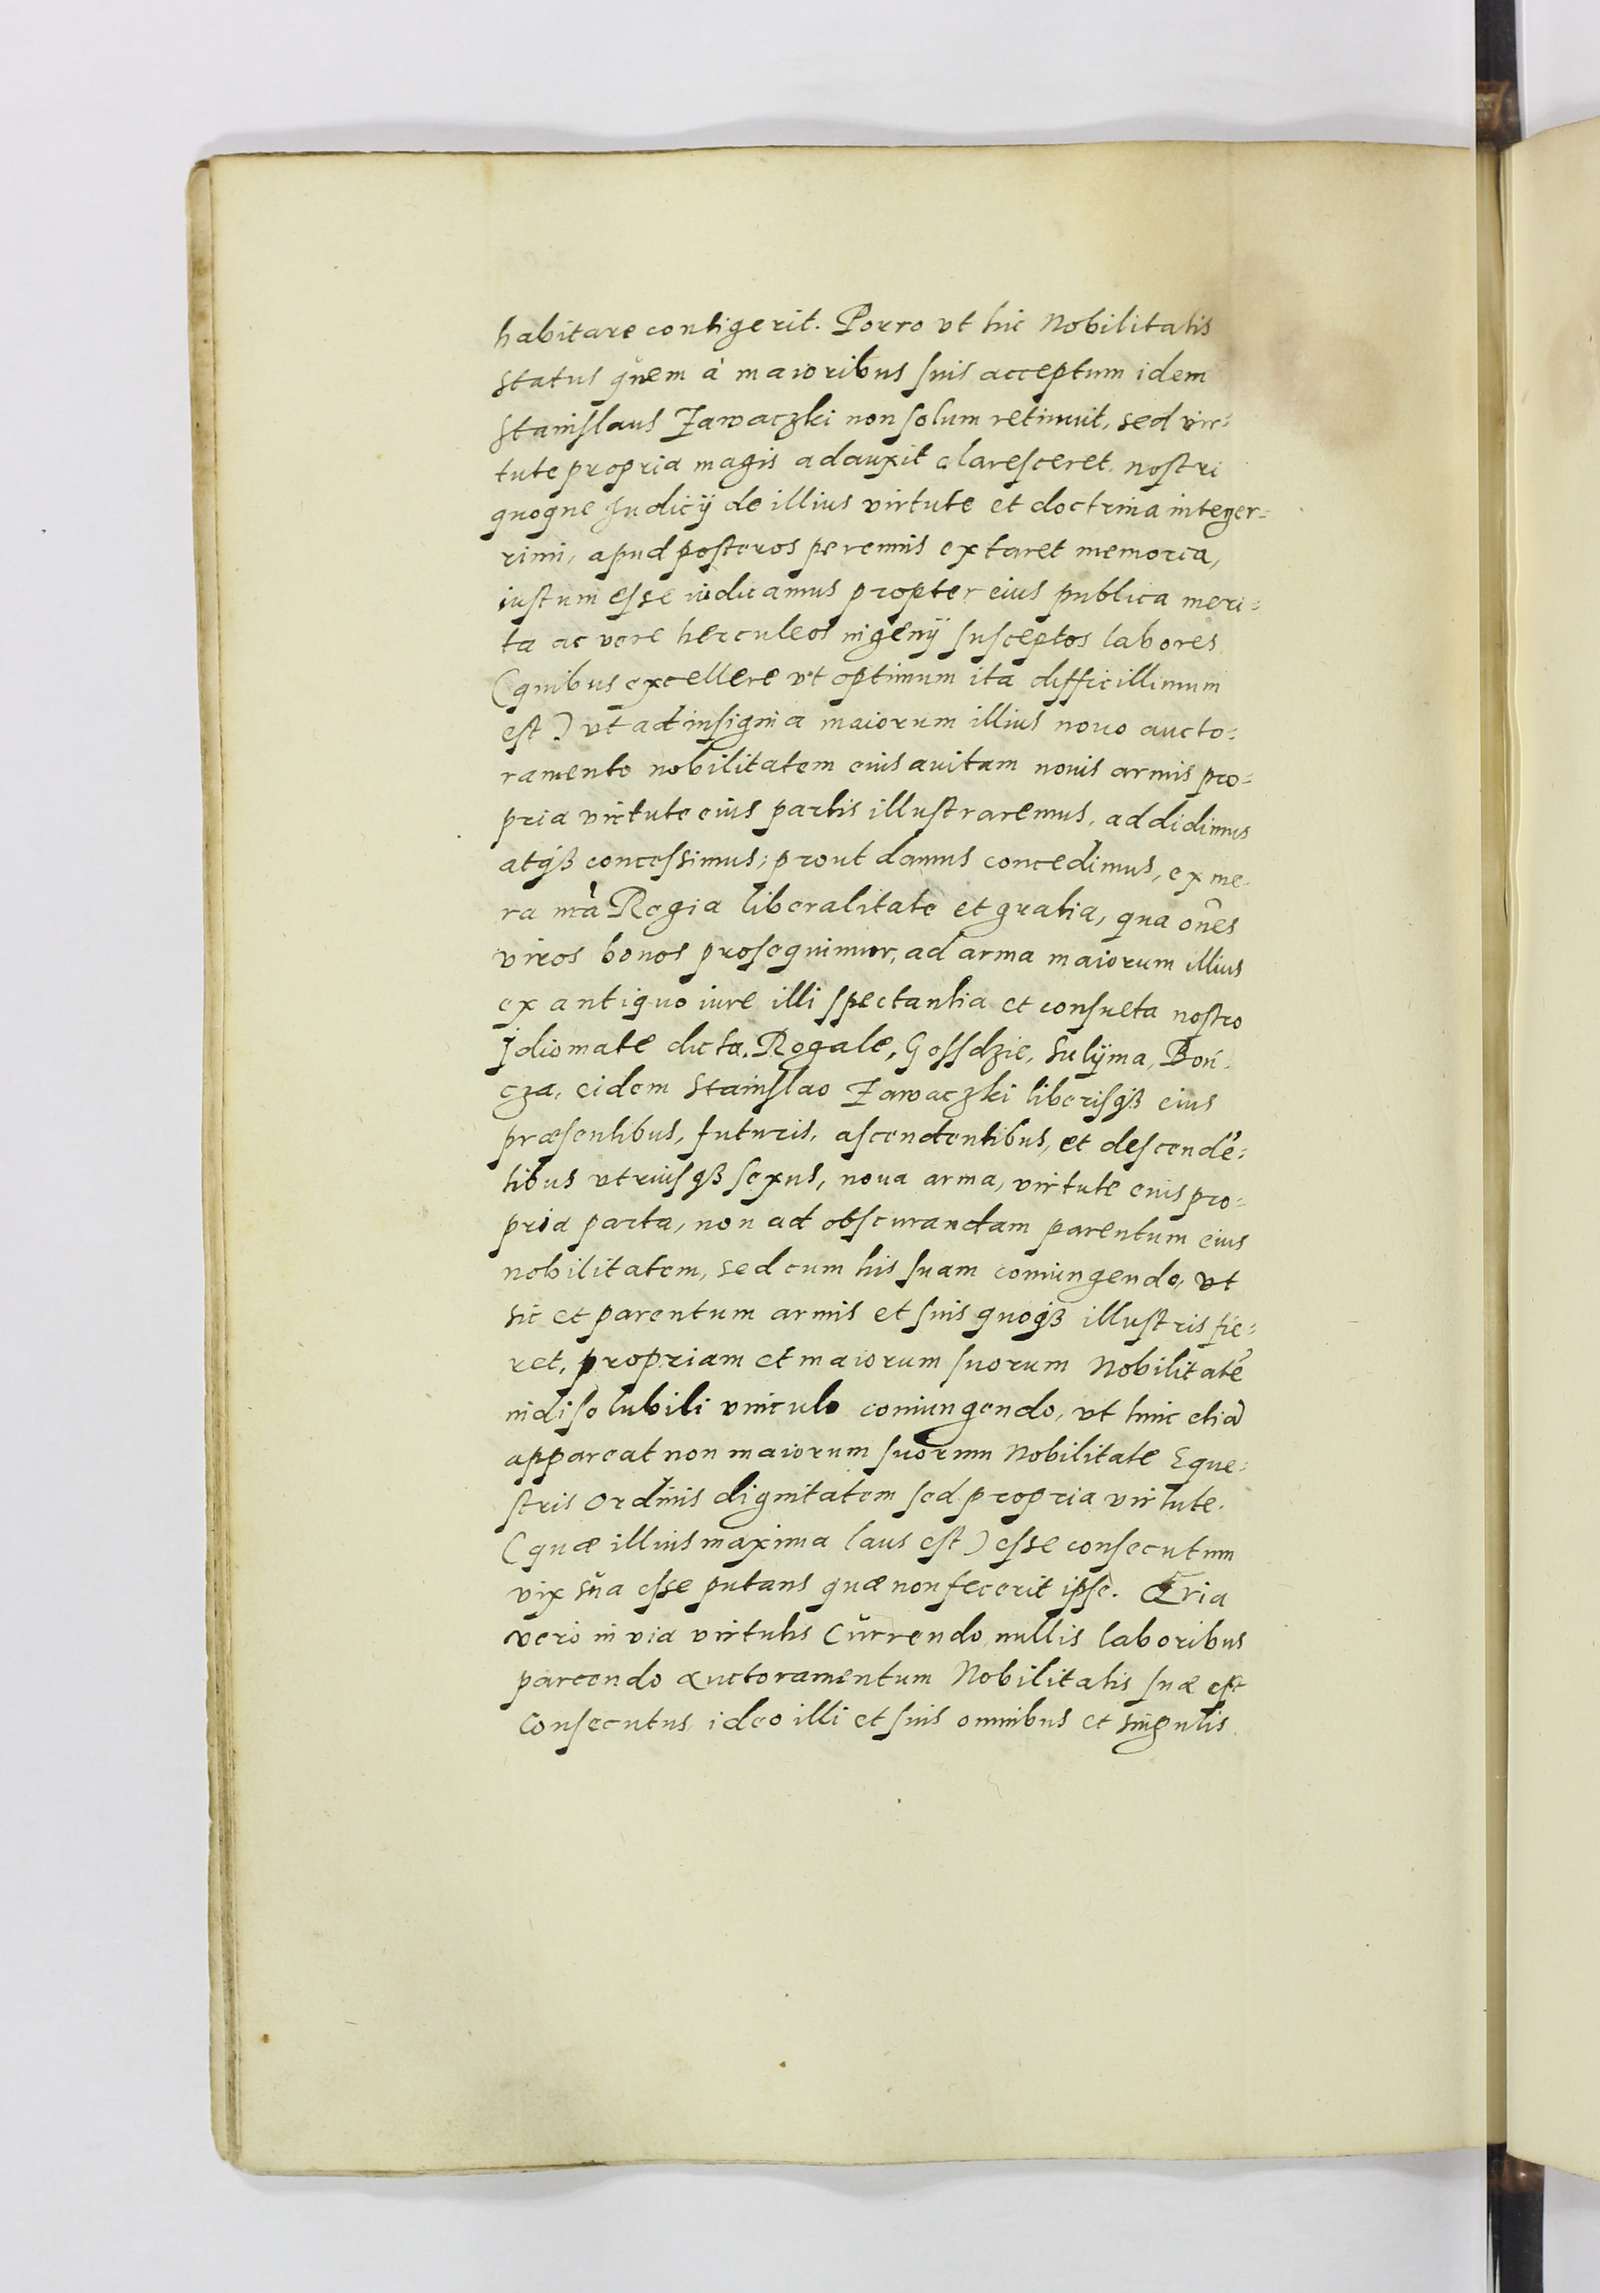 habitare contigerit. Porro vt hic Nobilitatis
status quem à maioribus suis acceptum idem
Stanislaus Zawaczki non solum retinuit, sed vir=
tute propria magis adauxit claresceret. nostri
quoque Judicij de illius virtute et doctrina integer=
rimi, apud posteros perennis extaret memoria,
iustum esse iudicamus propter eius publica meri=
ta ac vere herculeos ingenij susceptos labores
(quibus excellere vt optimum ita difficillimum
est) vt ad insignia maiorum illius nouo aucto=
ramento nobilitatem eius auitam nouis armis pro=
pria virtute eius partis illustraremus, addidimus
atqȝ concessimus, prout damus concedimus, ex me=
ra nrà Regia liberalitate et gratia, qua oñes
viros bonos prosequimur, ad arma maiorum illius
ex antiquo iure illi spectantia et consueta nostro
Jdiomate dicta. Rogale, Gossdzie, Sulÿma, Boń=
cza, eidem Stanislao Zawaczki liberisqȝ eius
præsentibus, futuris, ascendentibus, et descendẽ=
tibus vtriusqȝ sexus, noua arma, virtute eius pro=
pria parta, non ad obscurandam parentum eius
nobilitatem, sed cum his suam coniungendo, vt
sic et parentum armis et suis quoqȝ illustris fie=
ret, propriam et maiorum suorum Nobilitatẽ
indisolubili vinculo coniungendo, vt hinc etiã
appareat non maiorum suorum Nobilitate Eque=
stris Ordinis dignitatem sed propria virtute.
(quæ illius maxima laus est) esse consecutum
vix sua esse putans quæ non fecerit ipse. Qria
vero in via virtutis Currendo nullis laboribus
parcendo auctoramentum Nobilitatis suæ est
Consecutus, ideo illi et suis omnibus et singulis